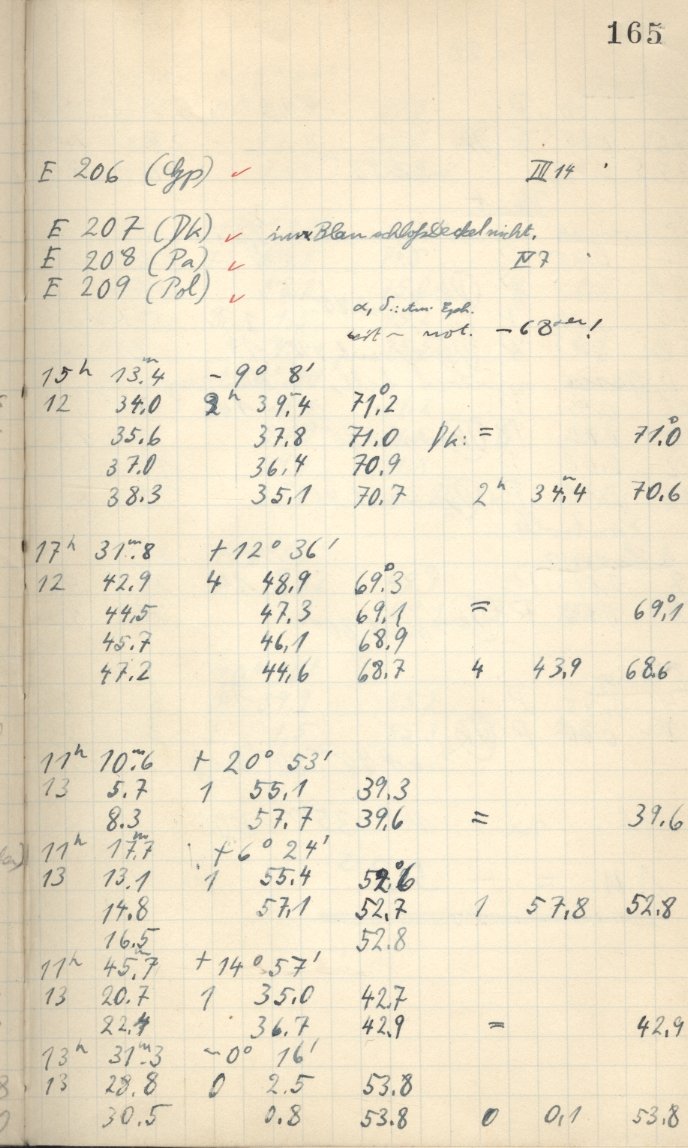 165
E 206 (Gp) ✓ III 14
E 207 (Dk) ✓ Blau schloß Deckel nicht.
E 208 (Pa) ✓ IV 7
E 209 (Pol) ✓
α, δ Eph.
not. -68 !
15ʰ 13ᵐ.4 - 9° 8'
12 34.0 2ʰ 39ᵐ.4 71°.2
35.6 37.8 71.0 Dk: = 71°.0
37.0 36.4 70.9
38.3 35.1 70.7 2ʰ 34ᵐ.4 70.6
17ʰ 31ᵐ.8 + 12° 36'
12 42.9 4 48.9 69°.3
44.5 47.3 69.1 = 69°.1
45.7 46.1 68.9
47.2 44.6 68.7 4 43.9 68.6
11ʰ 10ᵐ.6 + 20° 53'
13 5.7 1 55.1 39.3
8.3 57.7 39.6 = 39.6
11ʰ 17ᵐ.7 + 6° 24'
13 13.1 1 55.4 52°.6
14.8 57.1 52.7 1 57.8 52.8
16.5 52.8
11ʰ 45ᵐ.7 + 14° 57'
13 20.7 1 35.0 42.7
22.4 36.7 42.9 = 42.9
13ʰ 31ᵐ.3 - 0° 16'
13 28.8 0 2.5 53.8
30.5 0.8 53.8 0 0.1 53.8